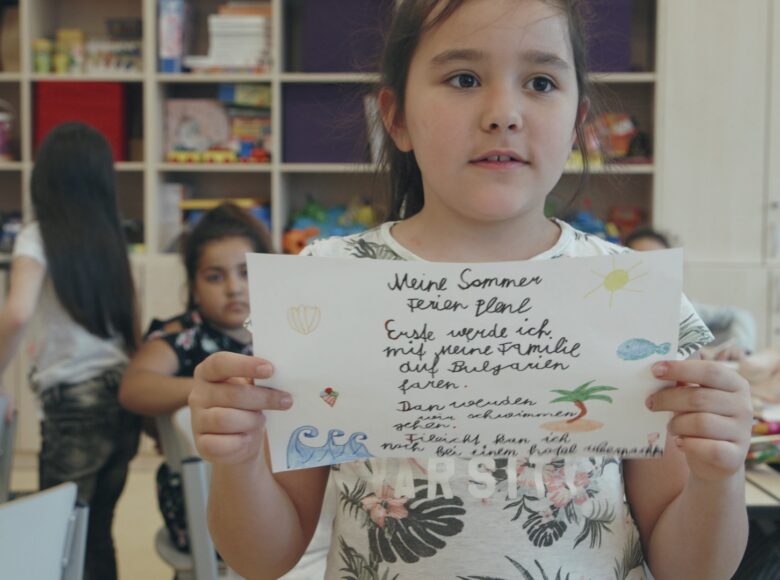 Meine Sommer
Ferien Plenl
Erste werde ich
mit meine Familie
auf Bulgarien
faren.
Dan werden
wir schwimmen
gehen.
Fileicht kan ich
noch bei einem hotal
VARSITY